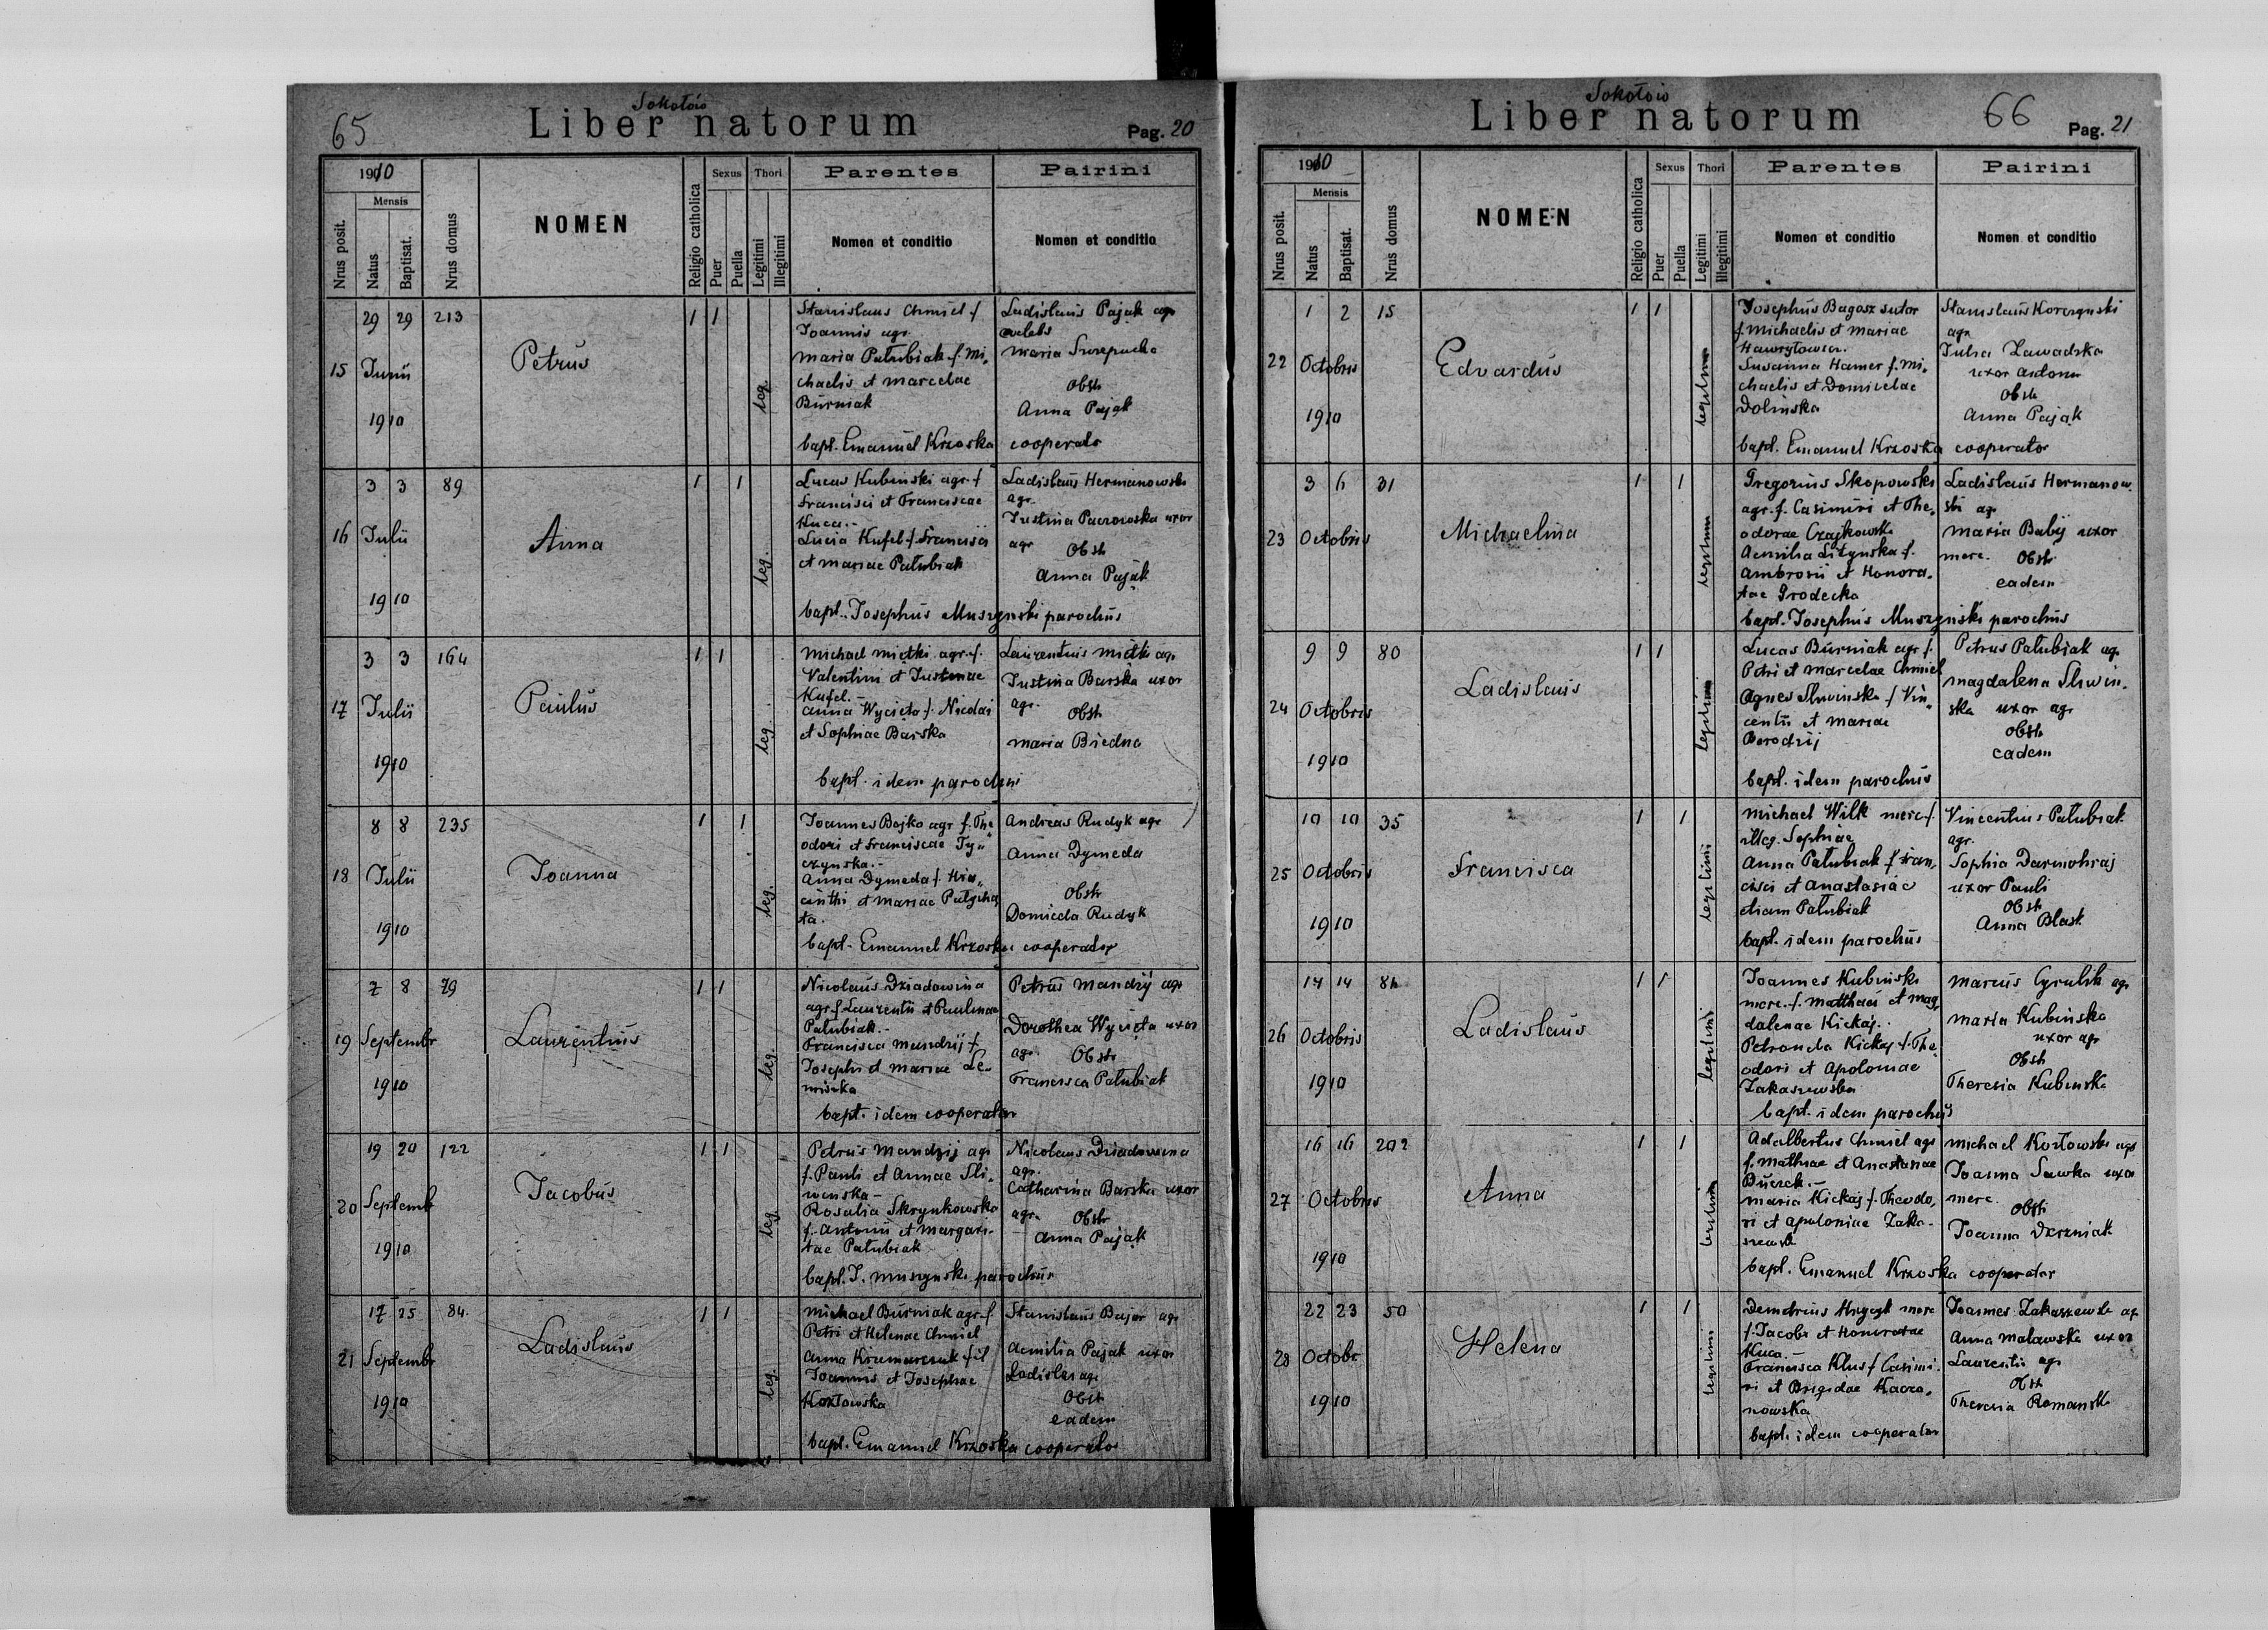 65
Sokołów
Liber natorum
Pag. 20
1910
Nrus posit.
Mensis
Natus
Baptisat.
Nrus domus
NOMEN
Religio catholica
Sexus
Puer
Puella
Thori
Legitimi
Illegitimi
Parentes
Nomen et conditio
Pairini
Nomen et conditio
15
29 29 213
Junii
1910
Petrus
1 1
leg.
Stanislaus Chmiel f.
Joannis agr.
Maria Pałubiak f. Mi-
chaelis et Marcelae
Burniak
Ladislaus Pająk agr
Maria
Obst
Anna Pająk
bapt. Emanuel Krzoska cooperator
16
3 3 89
Julii
1910
Anna
1 1
leg.
Lucas Kubinski agr. f.
Francisci et Franciscae
Kuca.-
Lucia Kufel f. Francisci
et Mariae Pałubiak
Ladislaus Hermanowski
agr.
Justina uxor
agr
Obst
Anna Pająk
bapt. Josephus Muszynski parochus
17
3 3 164
Julii
1910
Paulus
1 1
leg.
Michael Miętki agr. f.
Valentini et Justinae
Kufel.-
Anna Wycięta f. Nicolai
et Sophiae Barska
Laurentius Miętki agr
Justina Barska uxor
agr.
Obst
Maria Biedna
bapt. idem parochus
18
8 8 235
Julii
1910
Joanna
1 1
leg.
Joannes Bojko agr f. The-
odori et Franciscae Ty-
czynska.-
Anna Dymeda f. Hia-
cinthi et Mariae
ta.
Andreas Rudyk agr
Anna Dymeda
Obst
Domicela Rudyk
bapt. Emanuel Krzoska cooperator
19
7 8 79
Septembr
1910
Laurentius
1 1
leg.
Nicolaus Dziadowina
agr f. Laurentii et Paulinae
Pałubiak.-
Francisca Mandzij f.
Josephi et Mariae Le-
Petrus Mandzij agr
Dorothea Wycięta uxor
agr.
Obst
Francisca Pałubiak
bapt. idem cooperator
20
19 20 122
Septemb
1910
Jacobus
1 1
leg.
Petrus Mandzij agr
f. Pauli et Annae Sli-
winska -
Rosalia Skrynkowska
f. Antonii et Margari-
tae Pałubiak
Nicolaus Dziadowina
agr.
Catharina Barska uxor
agr.
Obst
Anna Pająk
bapt. J. Muszynski parochus
21
17 25 84
Septembr
1910
Ladislaus
1 1
leg.
Michael Burniak agr. f.
Petri et Helenae Chmiel
Anna fil
Joannis et Josephae
Kozłowska
Stanislaus Bajor agr
Aemilia Pająk uxor
Ladislai agr
Obst
eadem
bapt. Emanuel Krzoska cooperator
Sokołów
Liber natorum
66
Pag. 21
1910
Nrus posit.
Mensis
Natus
Baptisat.
Nrus domus
NOMEN
Religio catholica
Sexus
Puer
Puella
Thori
Legitimi
Illegitimi
Parentes
Nomen et conditio
Pairini
Nomen et conditio
22
1 2 15
Octobris
1910
Edvardus
1 1
legitimi
Josephus Bagosz sutor
f. Michaelis et Mariae
Susanna Hamer f. Mi-
chaelis et Domicelae
Dolinska
Stanislaus Korczynski
agr.
Julia Zawadzka
uxor
Obst
Anna Pająk
bapt. Emanuel Krzoska cooperator
23
3 6 31
Octobris
1910
Michaelina
1 1
legitimi
Gregorius Skopowski
agr. f. Casimiri et The-
odorae Czajkowska
Aemilia Liżynska f.
Ambrosii et Honora-
tae Grodecka
Ladislaus Hermanow-
ski agr
Maria Babij uxor
merc.
Obst
eadem
bapt. Josephus Muszynski parochus
24
9 9 80
Octobris
1910
Ladislaus
1 1
legitimi
Lucas Burniak agr f.
Petri et Marcelae Chmiel
Agnes Sliwinska f. Vin-
centii et Mariae
Petrus Pałubiak agr
Magdalena Sliwin-
ska uxor agr
Obst
eadem
bapt. idem parochus
25
10 10 35
Octobris
1910
Francisca
1 1
legitimi
Michael Wilk merc f.
illeg. Sophiae
Anna Pałubiak f. Fran-
cisci et Anastasiae
etiam Pałubiak
Vincentius Pałubiak
agr.
Sophia Darmohraj
uxor Pauli
Obst
Anna Blask
bapt. idem parochus
26
14 14 84
Octobris
1910
Ladislaus
1 1
legitimi
Joannes Kubinski
merc. f. Matthaei et Mag-
dalenae Kickaj.
Petronela Kickaj f. The-
odori et Apoloniae
Zakaszewska
Marcus Cyrulik agr
Maria Kubinska
uxor agr
Obst
Theresia Kubinska
bapt. idem parochus
27
16 16 202
Octobris
1910
Anna
1 1
legitimi
Adalbertus Chmiel agr
f. Mathiae et Anastasiae
Maria Kickaj f. Theodo-
ri et Apoloniae Zaka-
szewsk
Michael Kozłowski agr
Joanna Sawka uxor
merc.
Obst
Joanna
bapt. Emanuel Krzoska cooperator
28
22 23 50
Octobr
1910
Helena
1 1
legitimi
Demetrius Hrycyk merc
f. Jacobi et Honoratae
Kuca.-
Francisca Klus f. Casimi-
ri et Brigidae Kacza-
nowska
Joannes Zakaszewski agr
Anna Malawska uxor
Laurentii agr
Obst
Theresia Romanik
bapt. idem cooperator